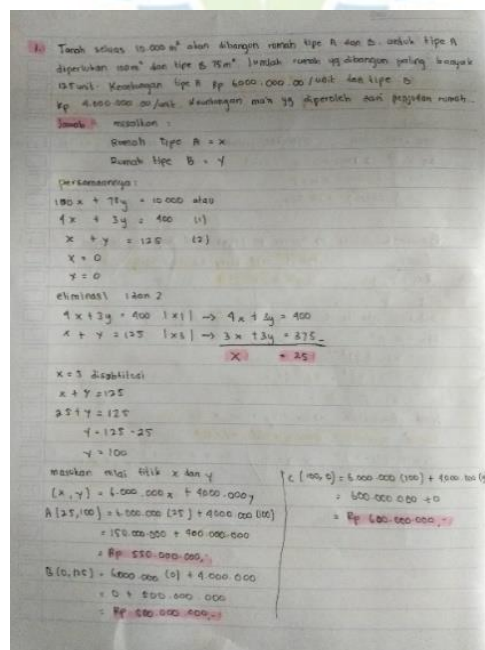 1. Tanah seluas 10.000 m² akan dibangun rumah tipe A dan B. untuk tipe A
diperlukan 100 m² dan tipe B 75 m² Jumlah rumah yg dibangun paling banyak
125 unit. Keuntungan tipe A Rp 6000.000.00/unit dan tipe B
Rp 4.000.000.00/unit. Keuntungan max yg diperoleh dari penjualan rumah..
Jawab : misalkan :
Rumah tipe A = x
Rumah tipe B = y
persamaannya :
100x + 75y = 10 000 atau
4x + 3y = 400 (1)
x + y = 125 (2)
x = 0
y = 0
eliminasi 1 dan 2
4x + 3y = 400 |x1| → 4x + 3y = 400
x + y = 125 |x3| → 3x + 3y = 375 -
x = 25
x = 3 disubtitusi
x + y = 125
25 + y = 125
y = 125 - 25
y = 100
masukan nilai titik x dan y
(x, y) = 6.000.000x + 4000.000y
A (25,100) = 6.000.000 (25) + 4000.000 (100)
= 150.000.000 + 400.000.000
= Rp 550.000.000,-
B (0,125) = 6000.000 (0) + 4.000.000
= 0 + 500.000.000
= Rp 500.000.000,-
C (100, 0) = 6.000.000 (100) + 4000.000
= 600.000.000 + 0
= Rp 600.000.000,-